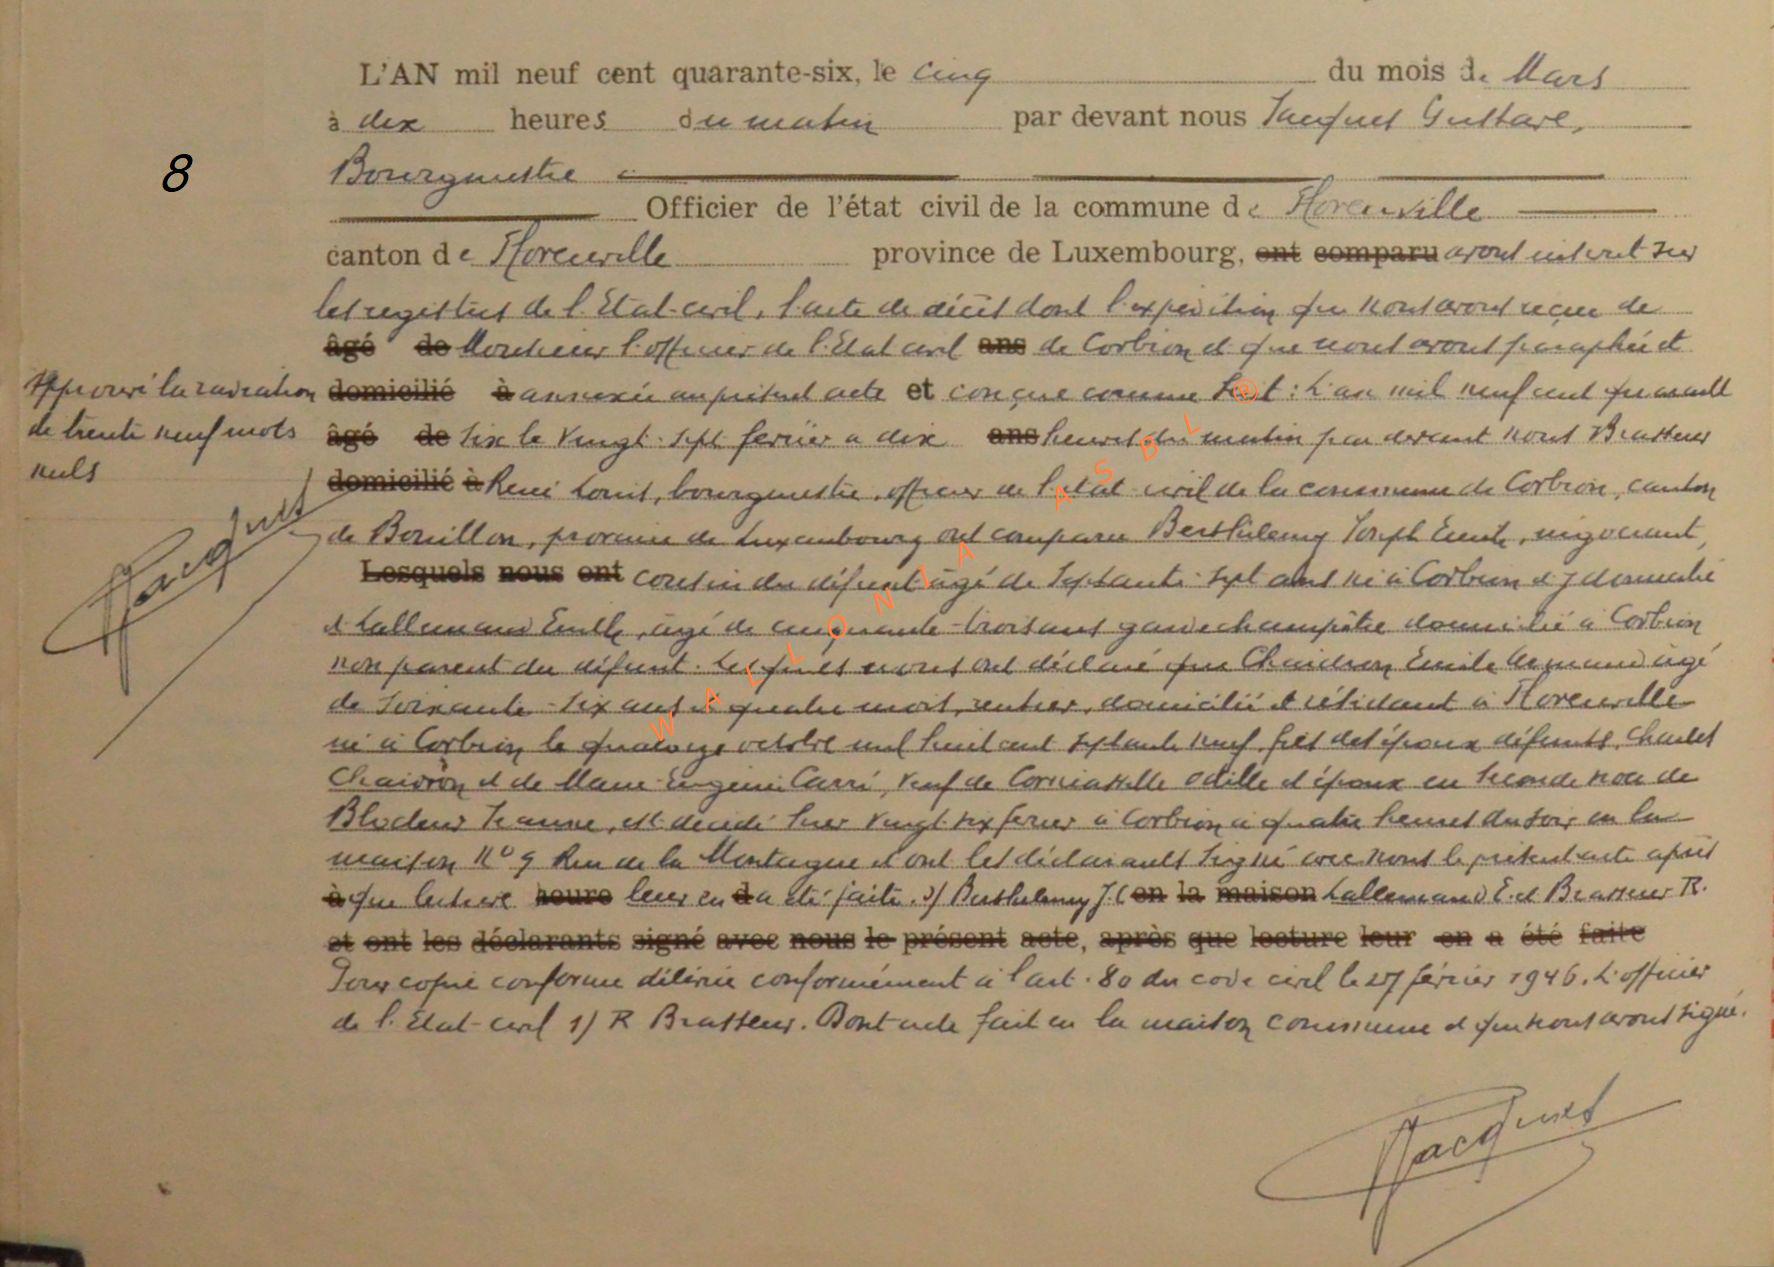 L'AN mil neuf cent quarante-six, le cinq du mois de Mars
à dix heures du matin par devant nous Jacques Gustave,
8
Bourgmestre
Officier de l'état civil de la commune de Florenville
canton de Florenville province de Luxembourg, ont comparu avons inscrit sur
les registres de l'Etat-civil, l'acte de décès dont l'expédition que nous avons reçue de
âgé de Monsieur l'officier de l'Etat civil ans de Corbion et que nous avons paraphée et
Approuvé la radiation domicilié à annexée au présent acte et conçue comme suit : L'an mil neuf cent quarante
de trente neuf mots âgé de six le vingt-sept février à dix ans heures du matin par devant nous Brasseur
nuls domicilié à René Louis, bourgmestre, officier de l'état-civil de la commune de Corbion, canton
Jacques
de Bouillon, province de Luxembourg ont comparu Berthélemy Joseph Emile, négociant,
Lesquels nous ont cousin du défunt âgé de septante-sept ans né à Corbion et y domicilié
et Lallemand Emile, âgé de cinquante-trois ans garde champêtre domicilié à Corbion
non parent du défunt. Lesquels nous ont déclaré que Chaidron Emile Armand âgé
de soixante-six ans et quatre mois, rentier, domicilié et résidant à Florenville
né à Corbion le quatorze octobre mil huit cent septante neuf, fils des époux défunts, Charles
Chaidron et de Marie-Eugénie Carré, veuf de Odille et époux en seconde noce de
Jeanne, est décédé hier vingt-six février à Corbion à quatre heures du soir en la
maison N° 9 Rue de la Montagne et ont les déclarants signé avec nous le présent acte après
à que lecture heure leur en d a été faite. s) Berthelemy J. (en la maison Lallemand E. et Brasseur R.
et ont les déclarants signé avec nous le présent acte, après que lecture leur en a été faite
Pour copie conforme délivrée conformément à l'art. 80 du code civil le 27 février 1946. L'officier
de l'Etat-civil s) R Brasseur. Dont acte fait en la maison commune et que nous avons signé.
Jacques
WALLONIA ASBL ®